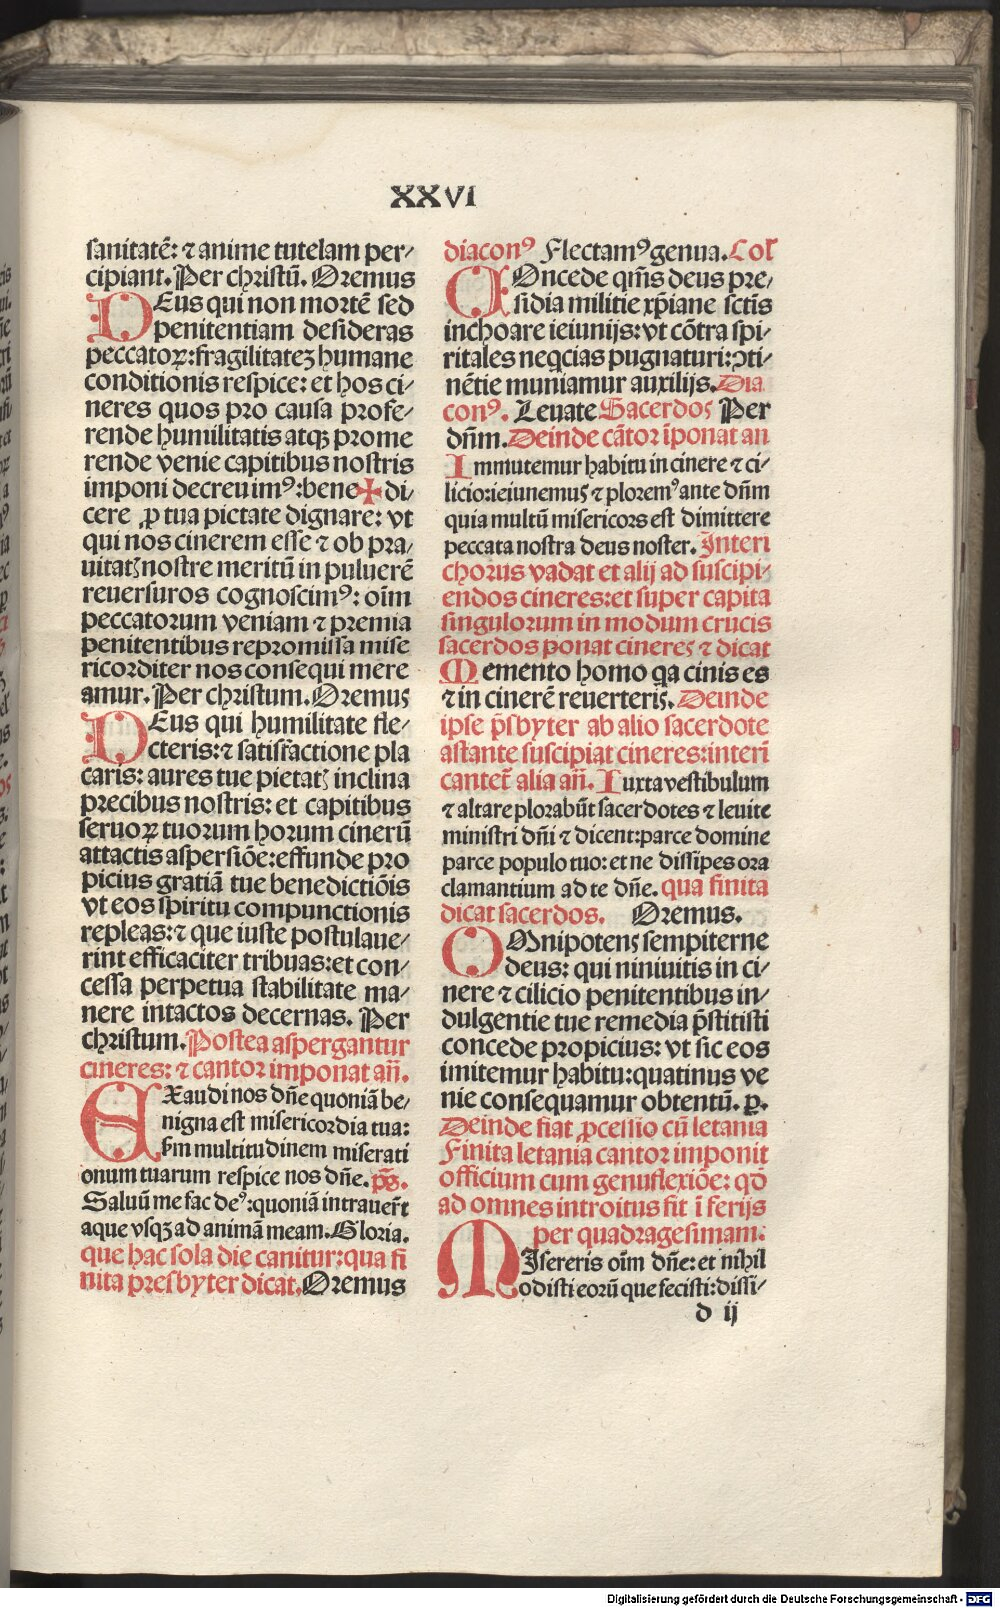 XXVI
sanitatē: ⁊ anime tutelam per⸗
cipiant. Per christū. Oremus
DEus qui non mortē sed
penitentiam desideras
peccatoꝝ: fragilitateꝫ humane
conditionis respice: et hos ci⸗
neres quos pro causa profe⸗
rende humilitatis atqꝫ prome
rende venie capitibus nostris
imponi decreuimꝰ: bene✠di⸗
cere ꝓ tua pietate dignare: vt
qui nos cinerem esse ⁊ ob pra⸗
uitatꝭ nostre meritū in puluerē
reuersuros cognoscimꝰ: oīm
peccatorum veniam ⁊ premia
penitentibus repromissa mise
ricorditer nos consequi mere
amur. Per christum. Oremus
DEus qui humilitate fle⸗
cteris: ⁊ satisfactione pla
caris: aures tue pietatꝭ inclina
precibus nostris: et capitibus
seruoꝝ tuorum horum cinerū
attactis aspersiōe: effunde pro
picius gratiā tue benedictiōis
vt eos spiritu compunctionis
repleas: ⁊ que iuste postulaue⸗
rint efficaciter tribuas: et con⸗
cessa perpetua stabilitate ma⸗
nere intactos decernas. Per
christum. Postea aspergantur
cineres: ⁊ cantor imponat añ.
EXaudi nos dñe quoniā be⸗
nigna est misericordia tua:
ẜm multitudinem miserati
onum tuarum respice nos dñe. p̄s.
Saluū me fac deꝰ: quoniā intrauerūt
aque vsqꝫ ad animā meam. Gloria.
que hac sola die canitur: qua fi
nita presbyter dicat. Oremus
diaconꝰ Flectamꝰ genua. Col
COncede qm̄s deus pre⸗
sidia militie xp̄iane sctīs
inchoare ieiunijs: vt cōtra spi⸗
ritales neqcias pugnaturi: ꝯti⸗
nētie muniamur auxilijs. Dia
conꝰ. Leuate Sacerdos Per
dñm. Deinde cātor īponat an
Immutemur habitu in cinere ⁊ ci⸗
licio: ieiunemus ⁊ ploremꝰ ante dñm
quia multū misericors est dimittere
peccata nostra deus noster. Interī
chorus vadat et alij ad suscipi⸗
endos cineres: et super capita
singulorum in modum crucis
sacerdos ponat cineres ⁊ dicat
Memento homo qa cinis es
⁊ in cinerē reuerteris. Deinde
ipse p̄sbyter ab alio sacerdote
astante suscipiat cineres: interī
cantet̄ alia añ. Iuxta vestibulum
⁊ altare plorabūt sacerdotes ⁊ leuite
ministri dñi ⁊ dicent: parce domine
parce populo tuo: et ne dissipes ora
clamantium ad te dñe. qua finita
dicat sacerdos. Oremus.
OMnipotens sempiterne
deus: qui niniuitis in ci⸗
nere ⁊ cilicio penitentibus in⸗
dulgentie tue remedia p̄stitisti
concede propicius: vt sic eos
imitemur habitu: quatinus ve
nie consequamur obtentū. ꝑ.
Deinde fiat ꝓcessio cū letania
Finita letania cantor imponit
officium cum genuflexiōe: qd̄
ad omnes introitus fit ī ferijs
per quadragesimam.
MIsereris oīm dñe: et nihil
odisti eorū que fecisti: dissi⸗
d ij
Digitalisierung gefördert durch die Deutsche Forschungsgemeinschaft - DFG